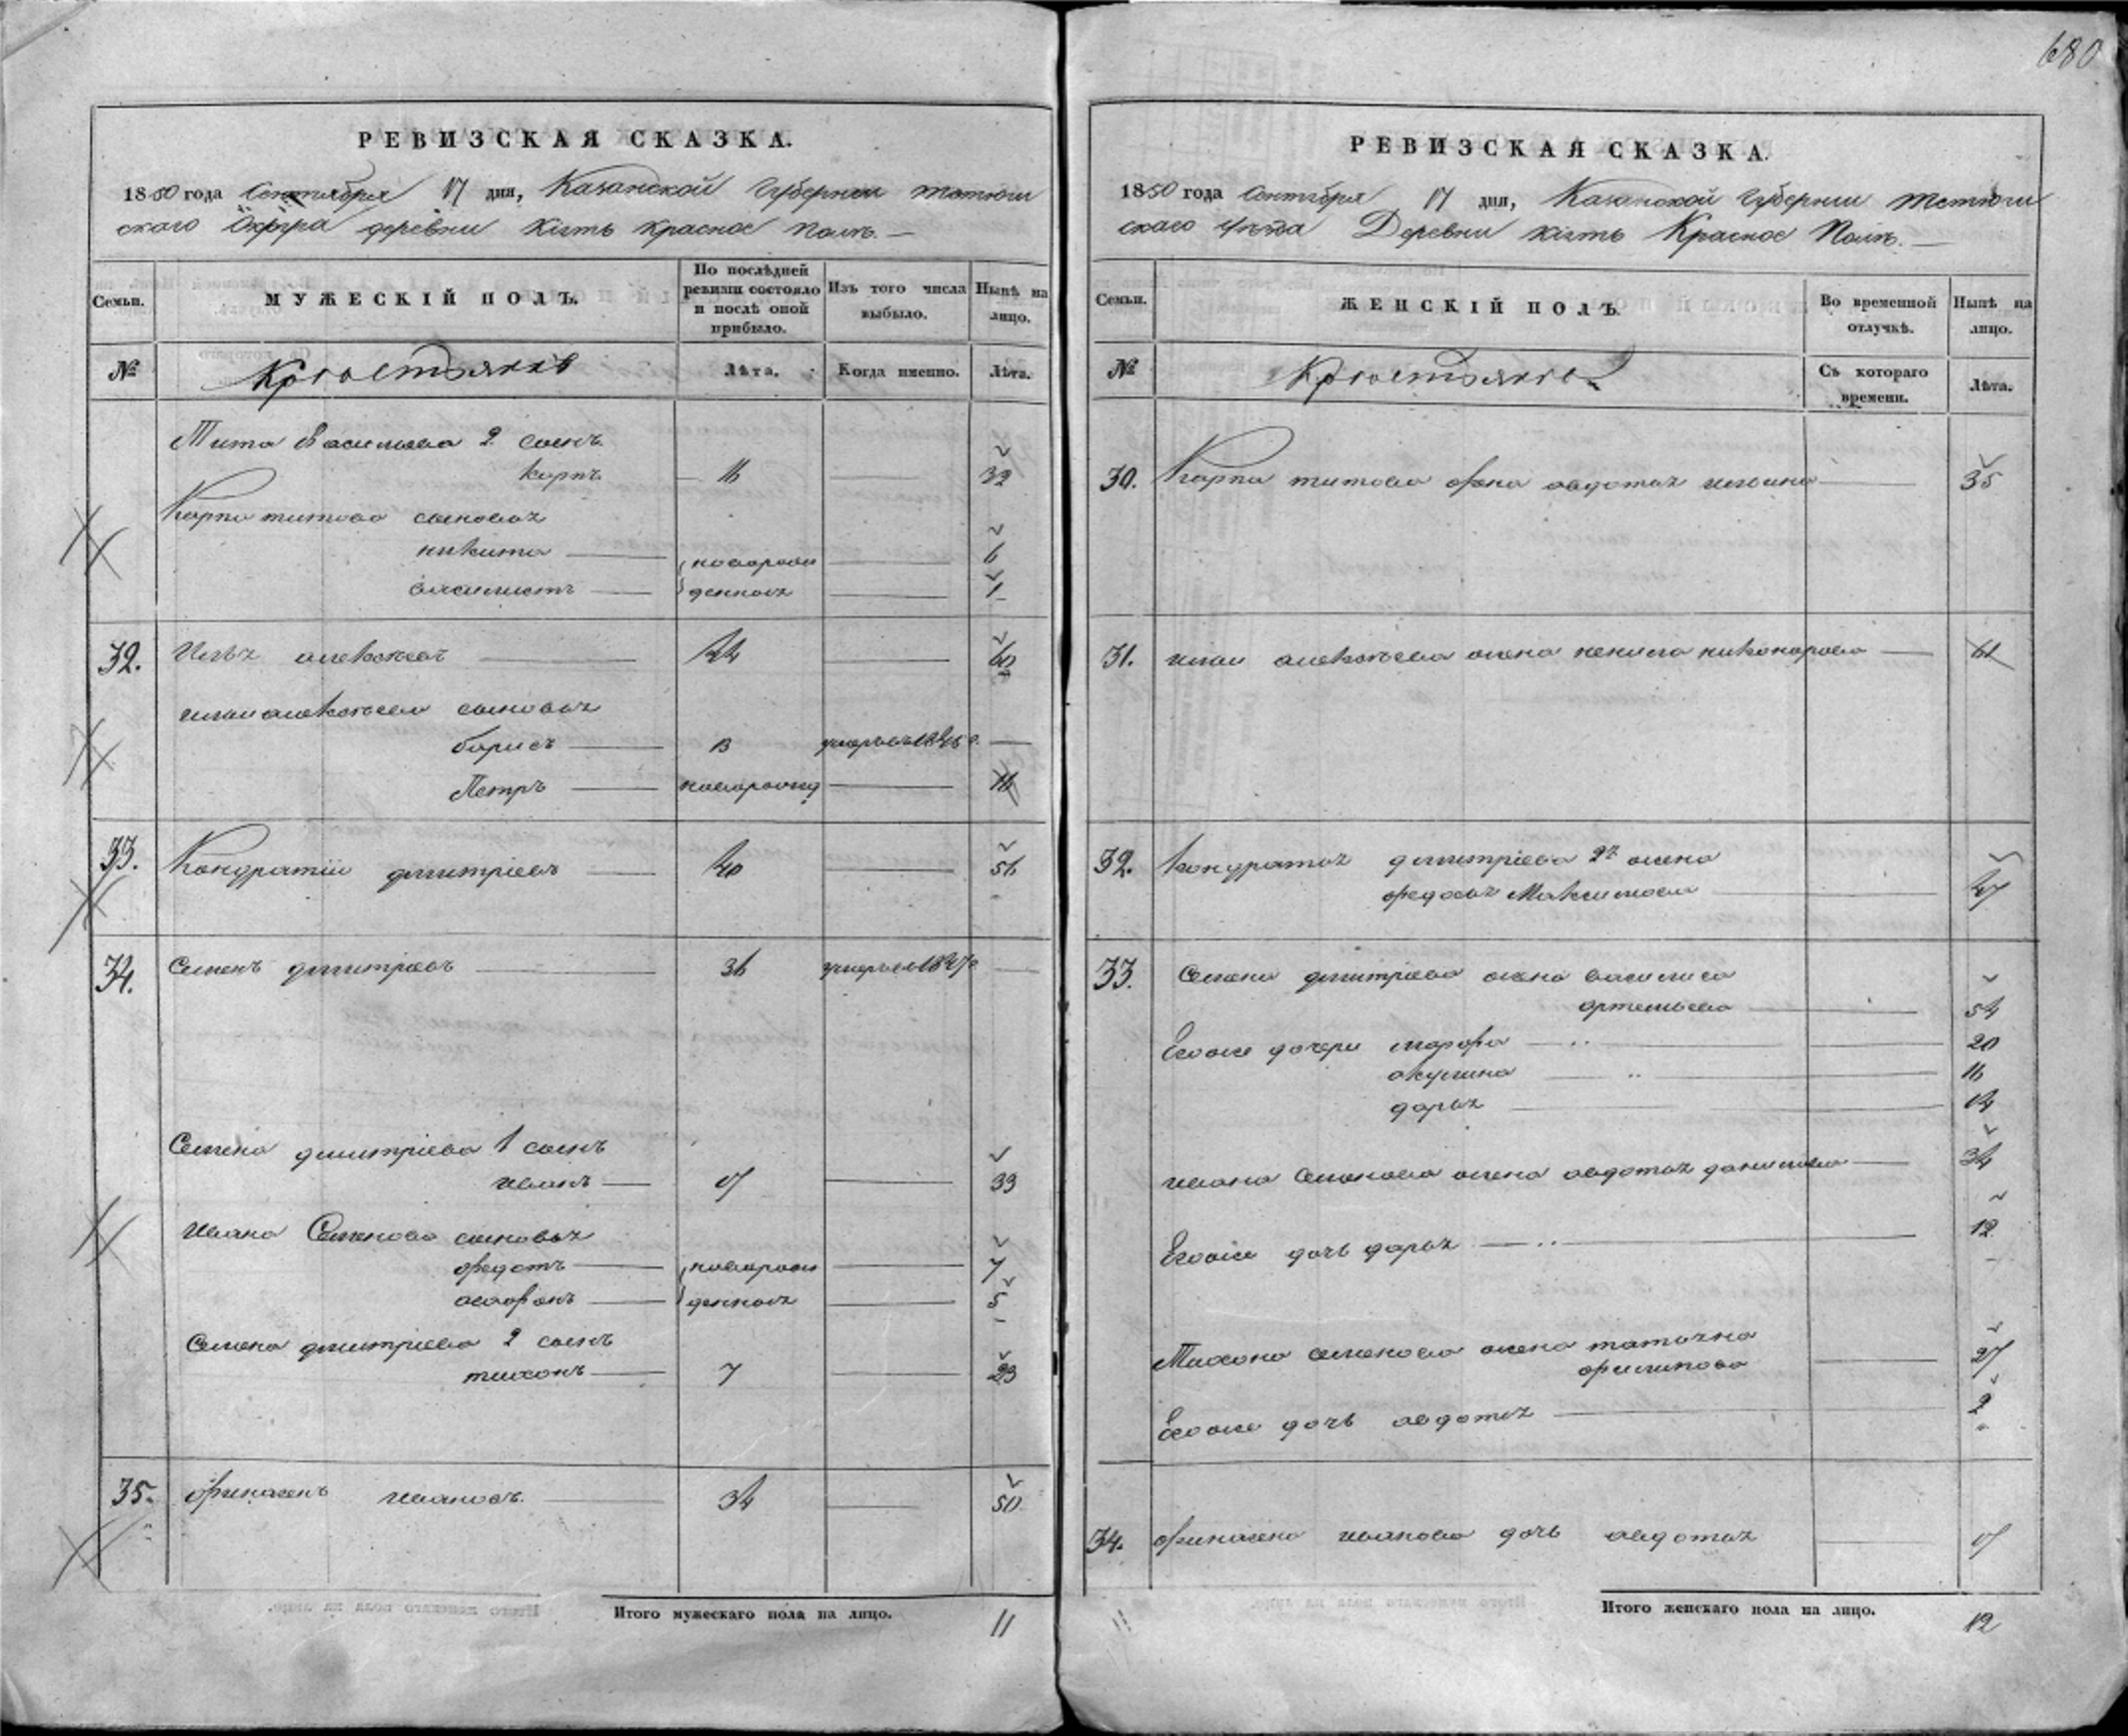 680
РЕВИЗСКАЯ СКАЗКА.
1850 года Сентября 17 дня, Казанской Губернии тетюш
скаго Округа деревни Кіять Красное Поле.
Семьи. МУЖЕСКІЙ ПОЛЪ. По послѣдней ревизіи состояло и послѣ оной прибыло. Изъ того числа выбыло. Нынѣ на лицо.
№ Крестьянъ Лѣта. Когда именно. Лѣта.
Тита Васильева 2 сынъ
карпъ 16 32
Карпа титова сыновья
никита новорож 6
василистъ денныя 1
32. Илья алексѣевъ 44 60
ильи алексѣева сыновья
борисъ 13 умеръ въ 1846 г.
Петръ новорожд 16
33. Кондратіи димитріевъ 40 56
34. Семенъ димитріевъ 36 умеръ въ 1847 г.
Семена димитріева 1 сынъ
иванъ 17 33
Ивана Семенова сыновья
федотъ новорож 7
агафонъ денныя 5
Семена димитріева 2 сынъ
тихонъ 7 23
35. иванов. 34 50
Итого мужескаго пола на лицо. 11
РЕВИЗСКАЯ СКАЗКА.
1850 года Сентября 17 дня, Казанской Губернии тетюш
скаго Уѣзда Деревни Кіять Красное Поле.
Семьи. ЖЕНСКІЙ ПОЛЪ. Во временной отлучкѣ. Нынѣ на лицо.
№ Съ котораго времени. Лѣта.
30. Карпа титова жена авдотья ильина 35
31. ильи алексѣева жена ненила никонорова 61
32. кондратья димитріева 2я жена
федосья Максимова 47
33. Семена димитріева жена василиса
артемьева 54
Егоже дочери марфа 20
акулина 16
дарья 14
ивана Семенова жена авдотья данилова 34
Егоже дочь дарья 12
Тихона семенова жена татьяна
филипова 27
Егоже дочь авдотья 2
34. иванова дочь авдотья 17
Итого женскаго пола на лицо. 12